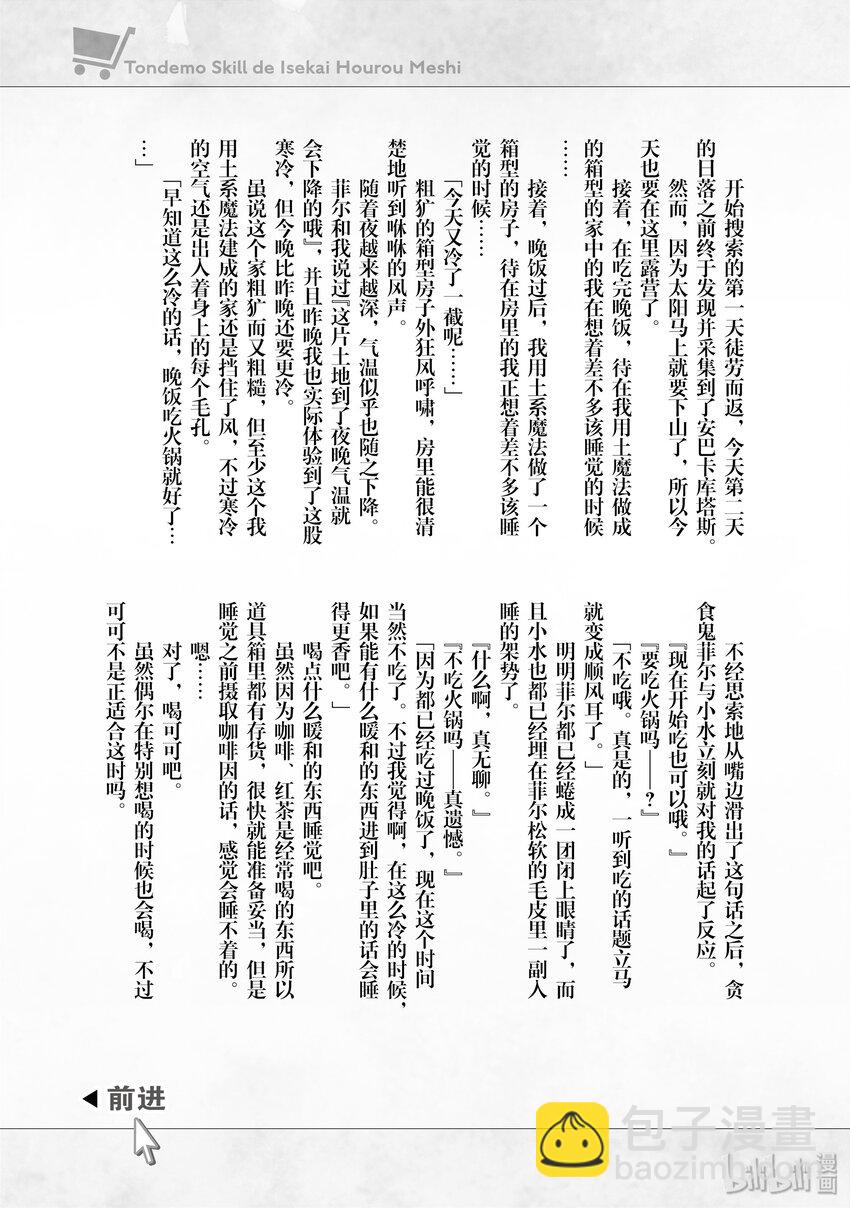 Tondemo Skill de Isekai Hourou Meshi
开始搜索的第一天徒劳而返，今天第二天
的日落之前终于发现并采集到了安巴卡库塔斯。
然而，因为太阳马上就要下山了，所以今
天也要在这里露营了。
接着，在吃完晚饭，待在我用土魔法做成
的箱型的家中的我在想着差不多该睡觉的时候
……
接着，晚饭过后，我用土系魔法做了一个
箱型的房子，待在房里的我正想着差不多该睡
觉的时候……
「今天又冷了一截呢……」
粗犷的箱型房子外狂风呼啸，房里能很清
楚地听到咻咻的风声。
随着夜越来越深，气温似乎也随之下降。
菲尔和我说过『这片土地到了夜晚气温就
会下降的哦』，并且昨晚我也实际体验到了这股
寒冷，但今晚比昨晚还要更冷。
虽说这个家粗犷而又粗糙，但至少这个我
用土系魔法建成的家还是挡住了风，不过寒冷
的空气还是出入着身上的每个毛孔。
「早知道这么冷的话，晚饭吃火锅就好了…
…」
不经思索地从嘴边滑出了这句话之后，贪
食鬼菲尔与小水立刻就对我的话起了反应。
『现在开始吃也可以哦。』
『要吃火锅吗——？』
「不吃哦。真是的，一听到吃的话题立马
就变成顺风耳了。」
明明菲尔都已经蜷成一团闭上眼睛了，而
且小水也都已经埋在菲尔松软的毛皮里一副入
睡的架势了。
『什么啊，真无聊。』
『不吃火锅吗——真遗憾。』
「因为都已经吃过晚饭了，现在这个时间
当然不吃了。不过我觉得啊，在这么冷的时候，
如果能有什么暖和的东西进到肚子里的话会睡
得更香吧。」
喝点什么暖和的东西睡觉吧。
虽然因为咖啡、红茶是经常喝的东西所以
道具箱里都有存货，很快就能准备妥当，但是
睡觉之前摄取咖啡因的话，感觉会睡不着的。
嗯……
对了，喝可可吧。
虽然偶尔在特别想喝的时候也会喝，不过
可可不是正适合这时吗。
前进
包子漫畫
baozimh.com
bilibili
漫画